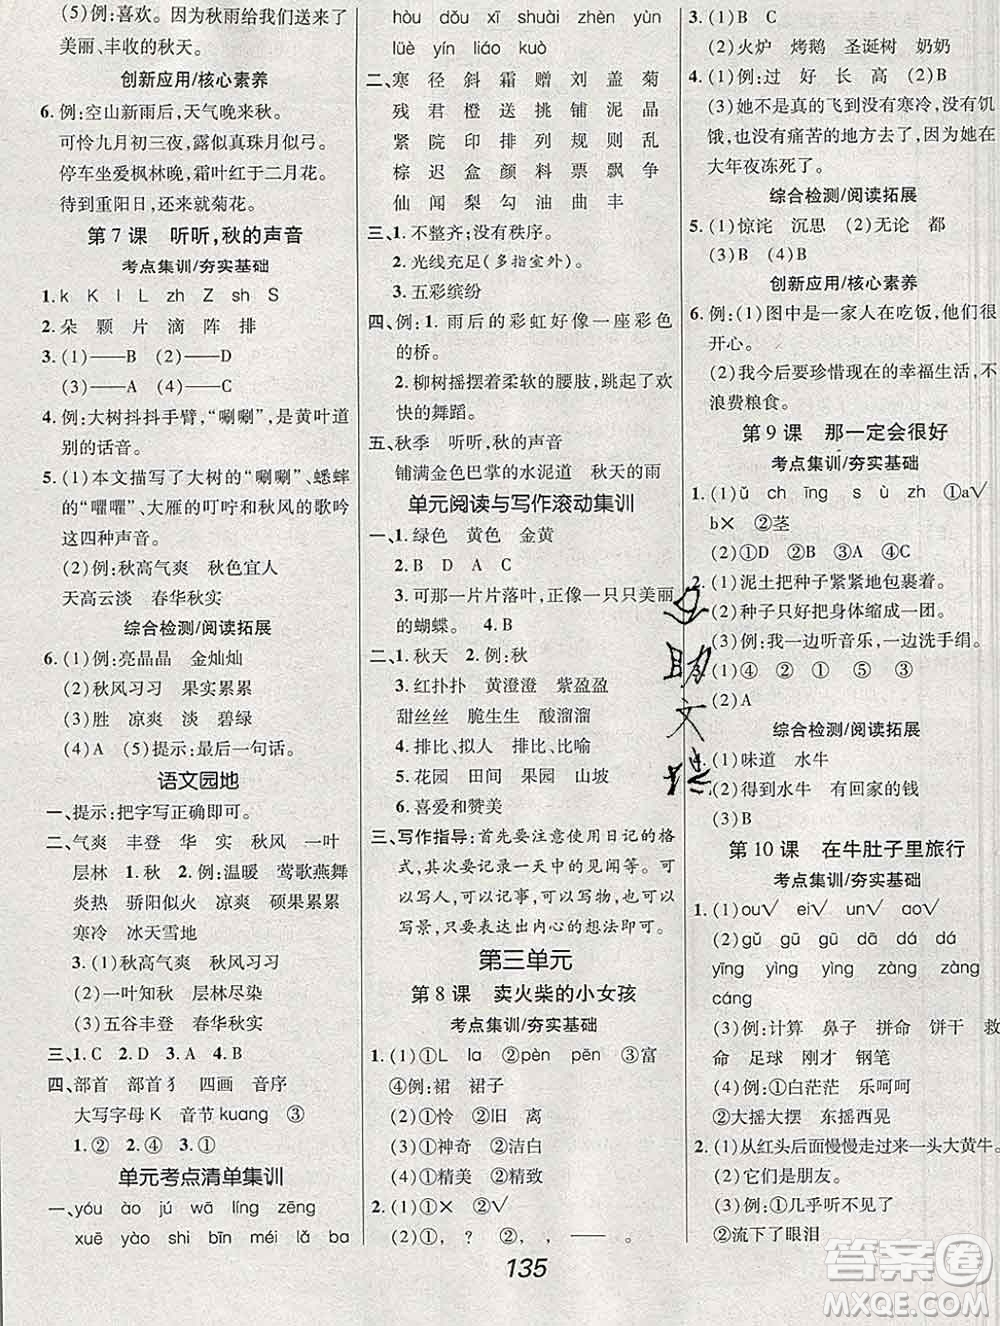 (5)例:喜欢。因为秋雨给我们送来了
美丽、丰收的秋天。
创新应用/核心素养
6.例:空山新雨后,天气晚来秋。
可怜九月初三夜,露似真珠月似弓。
停车坐爱枫林晚,霜叶红于二月花。
待到重阳日,还来就菊花。
第7课 听听,秋的声音
考点集训/夯实基础
1.k K l L zh Z sh S
2.朵 颗 片 滴 阵 排
3.(1)——B (2)——D
(3)——A (4)——C
4.例:大树抖抖手臂,“唰唰”,是黄叶道
别的话音。
5.(1)本文描写了大树的“唰唰”、蟋蟀
的“㘗㘗”、大雁的叮咛和秋风的歌吟
这四种声音。
(2)例:秋高气爽 秋色宜人
天高云淡 春华秋实
综合检测/阅读拓展
6.(1)例:亮晶晶 金灿灿
(2)秋风习习 果实累累
(3)胜 凉爽 淡 碧绿
(4)A (5)提示:最后一句话。
语文园地
一、提示:把字写正确即可。
二、气爽 丰登 华 实 秋风 一叶
层林 1.秋 2.例:温暖 莺歌燕舞
炎热 骄阳似火 凉爽 硕果累累
寒冷 冰天雪地
3.(1)秋高气爽 秋风习习
(2)一叶知秋 层林尽染
(3)五谷丰登 春华秋实
三、1.C 2.D 3.A 4.B
四、部首 部首犭 四画 音序
大写字母K 音节kuang ③
1.② 2.④ 3.①
单元考点清单集训
一、yóu ào jú wā líng zēng
xuē yào shi bīn méi lǎ ba
hòu dǒu xī shuài zhèn yùn
lüè yín liáo kuò
二、寒 径 斜 霜 赠 刘 盖 菊
残 君 橙 送 挑 铺 泥 晶
紧 院 印 排 列 规 则 乱
棕 迟 盒 颜 料 票 飘 争
仙 闻 梨 勾 油 曲 丰
三、1.不整齐;没有秩序。
2.光线充足(多指室外)。
3.五彩缤纷
四、例:1.雨后的彩虹好像一座彩色
的桥。
2.柳树摇摆着柔软的腰肢,跳起了欢
快的舞蹈。
五、秋季 听听,秋的声音
铺满金色巴掌的水泥道 秋天的雨
单元阅读与写作滚动集训
一、1.绿色 黄色 金黄
2.B D A C
3.可那一片片落叶,正像一只只美丽
的蝴蝶。 4.B
二、1.秋天 2.例:秋
3.红扑扑 黄澄澄 紫盈盈
甜丝丝 脆生生 酸溜溜
4.排比、拟人 排比 排比
5.花园 田间 果园 山坡
6.喜爱和赞美
三、写作指导:首先要注意使用日记的格
式,其次要记录一天中的见闻等。可
以写人,可以记事,可以写物,也可以
写景,只要表达出内心的想法即可。
第三单元
第8课 卖火柴的小女孩
考点集训/夯实基础
1.(1)①L la ②pèn pēn ③富
④例:裙 裙子
(2)①怜 ②旧 ③离
(3)①神奇 ②洁白
(4)①精美 ②精致
2.(1)①√ ②√
(2)①, ? ②, , —— 。
3.(1)B C
(2)火炉 烤鹅 圣诞树 奶奶
4.(1)例:过 好 长 高 (2)B
(3)她不是真的飞到没有寒冷,没有饥
饿,也没有痛苦的地方去了,因为她在
大年夜冻死了。
综合检测/阅读拓展
5.(1)惊诧 沉思 (2)无论 都
(3)B (4)B
创新应用/核心素养
6.例:(1)图中是一家人在吃饭,他们很
开心。
(2)我今后要珍惜现在的幸福生活,不
浪费粮食。
第9课 那一定会很好
考点集训/夯实基础
1.(1)ǔ ch īng s ù zh ①a√
b× ②茎
(2)①D ②B ③A ④C
2.(1)泥土把种子紧紧地包裹着。
(2)种子只好把身体缩成一团。
(3)例:我一边听音乐,一边洗手绢。
(1)④ ② ① ⑤ ③
(2)A
综合检测/阅读拓展
(1)味道 水牛
(2)得到水牛 有回家的钱
(3)B
第10课 在牛肚子里旅行
考点集训/夯实基础
1.(1)ou√ ei√ un√ ao√
(2)gǔ gū gū dā dá dá
yīng yìng yìng zàng zàng
cáng
(3)例:计算 鼻子 拼命 饼干 救
命 足球 刚才 钢笔
(4)例:①白茫茫 乐呵呵
②大摇大摆 东摇西晃
2.(1)从红头后面慢慢走过来一头大黄牛。
(2)它们是朋友。
(3)例:①几乎听不见了
②流下了眼泪
135
答案圈
MXQE.COM